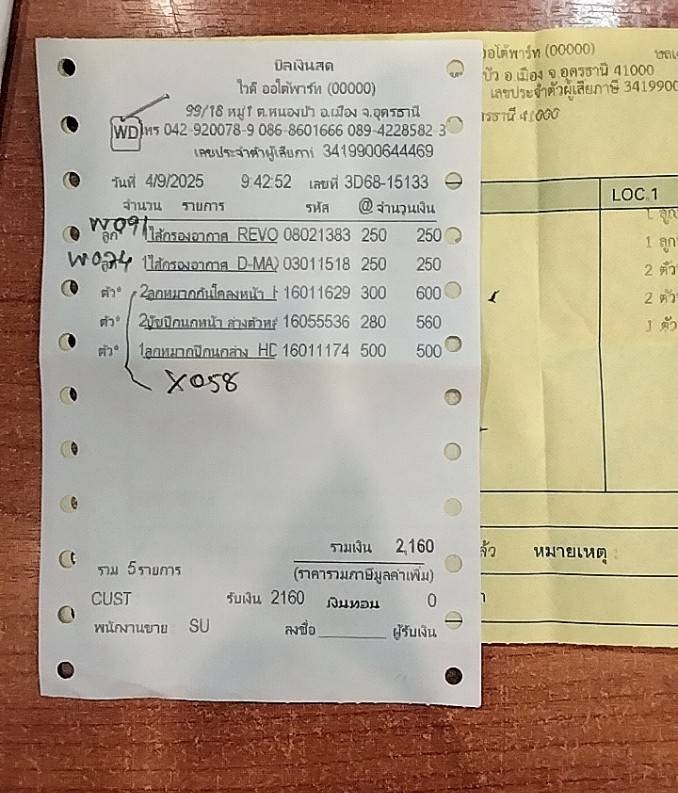 บิลเงินสด
ไวดี ออโต้พาร์ท (00000)
99/18 หมู่1 ต.หนองบัว อ.เมือง จ.อุดรธานี
WD โทร 042-920078-9 086-8601666 089-4228582-3
เลขประจำตัวผู้เสียภาษี 3419900644469
วันที่ 4/9/2025 9:42:52 เลขที่ 3D68-15133
จำนวน รายการ รหัส @ จำนวนเงิน
W091
ลูก 1 ไส้กรองอากาศ REVO 08021383 250 250
W024
1 ไส้กรองอากาศ D-MAX 03011518 250 250
ตัว 2 ลูกหมากกันโคลงหน้า 16011629 300 600
ตัว 2 บู๊ชปีกนกหน้า ล่างตัวห 16055536 280 560
ตัว 1 ลูกหมากปีกนกล่าง 16011174 500 500
X058
รวมเงิน 2,160
รวม 5 รายการ (ราคารวมภาษีมูลค่าเพิ่ม)
CUST รับเงิน 2160 เงินทอน 0
พนักงานขาย SU ลงชื่อ ผู้รับเงิน
ออโต้พาร์ท (00000)
บัว อ.เมือง จ.อุดรธานี 41000
เลขประจำตัวผู้เสียภาษี 3419900
41000
LOC.1
1 ลูก
1 ลูก
2 ตัว
2 ตัว
1 ตัว
หมายเหตุ :